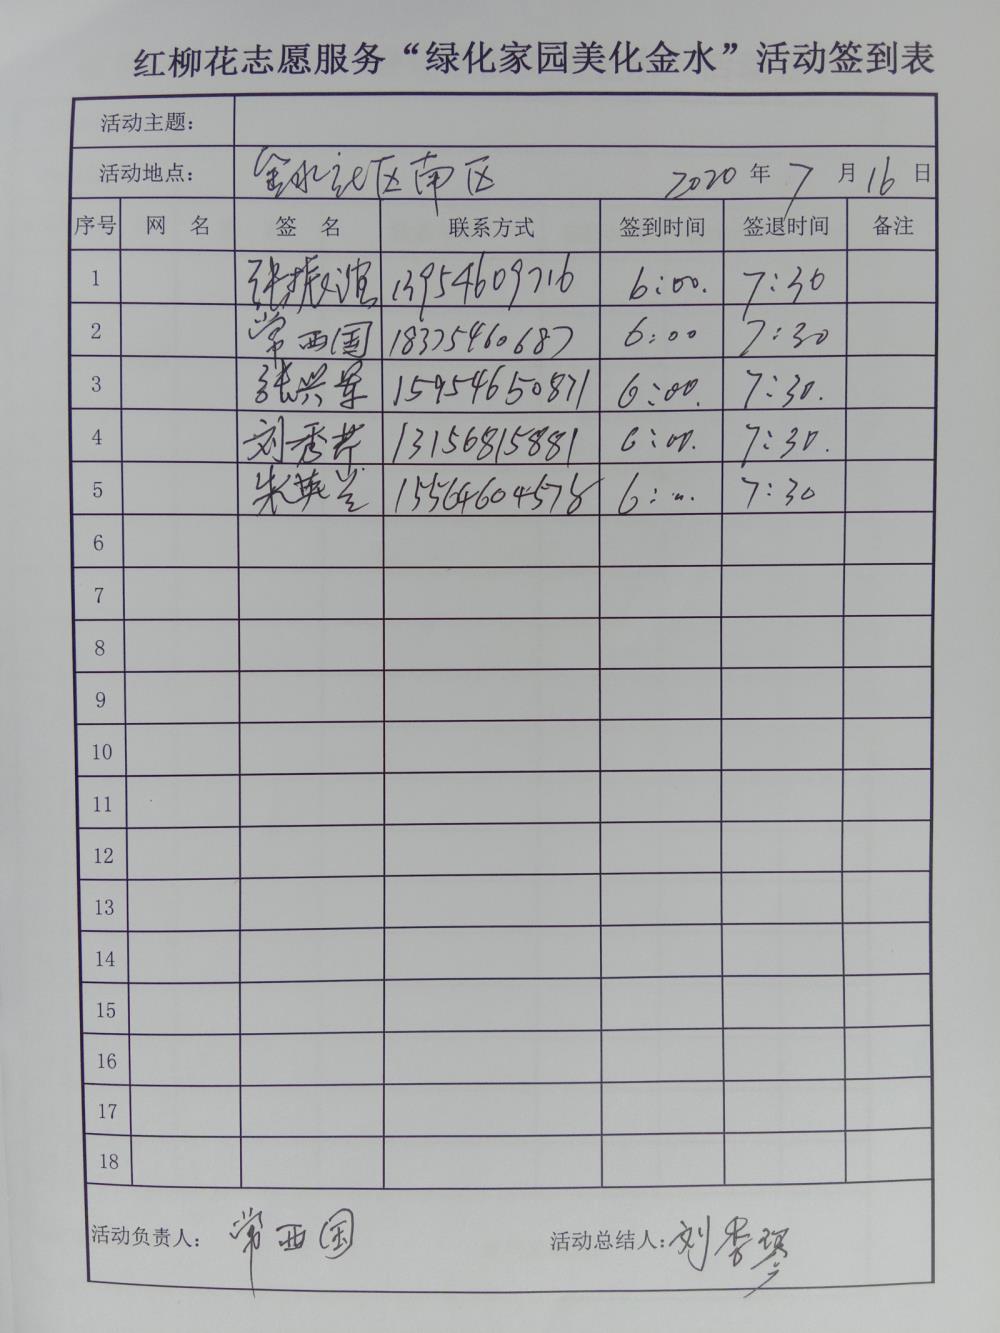 红柳花志愿服务“绿化家园美化金水”活动签到表
活动主题:
活动地点: 金水社区南区 2020 年 7 月 16 日
序号 网 名 签 名 联系方式 签到时间 签退时间 备注
1 张振谊 13954609716 6:00. 7:30
2 常西国 18375460687 6:00 7:30
3 张兴军 15954650871 6:00. 7:30.
4 刘秀芹 13156815881 6:00. 7:30.
5 朱英兰 15564604578 6: 7:30
6
7
8
9
10
11
12
13
14
15
16
17
18
活动负责人: 常西国 活动总结人: 刘